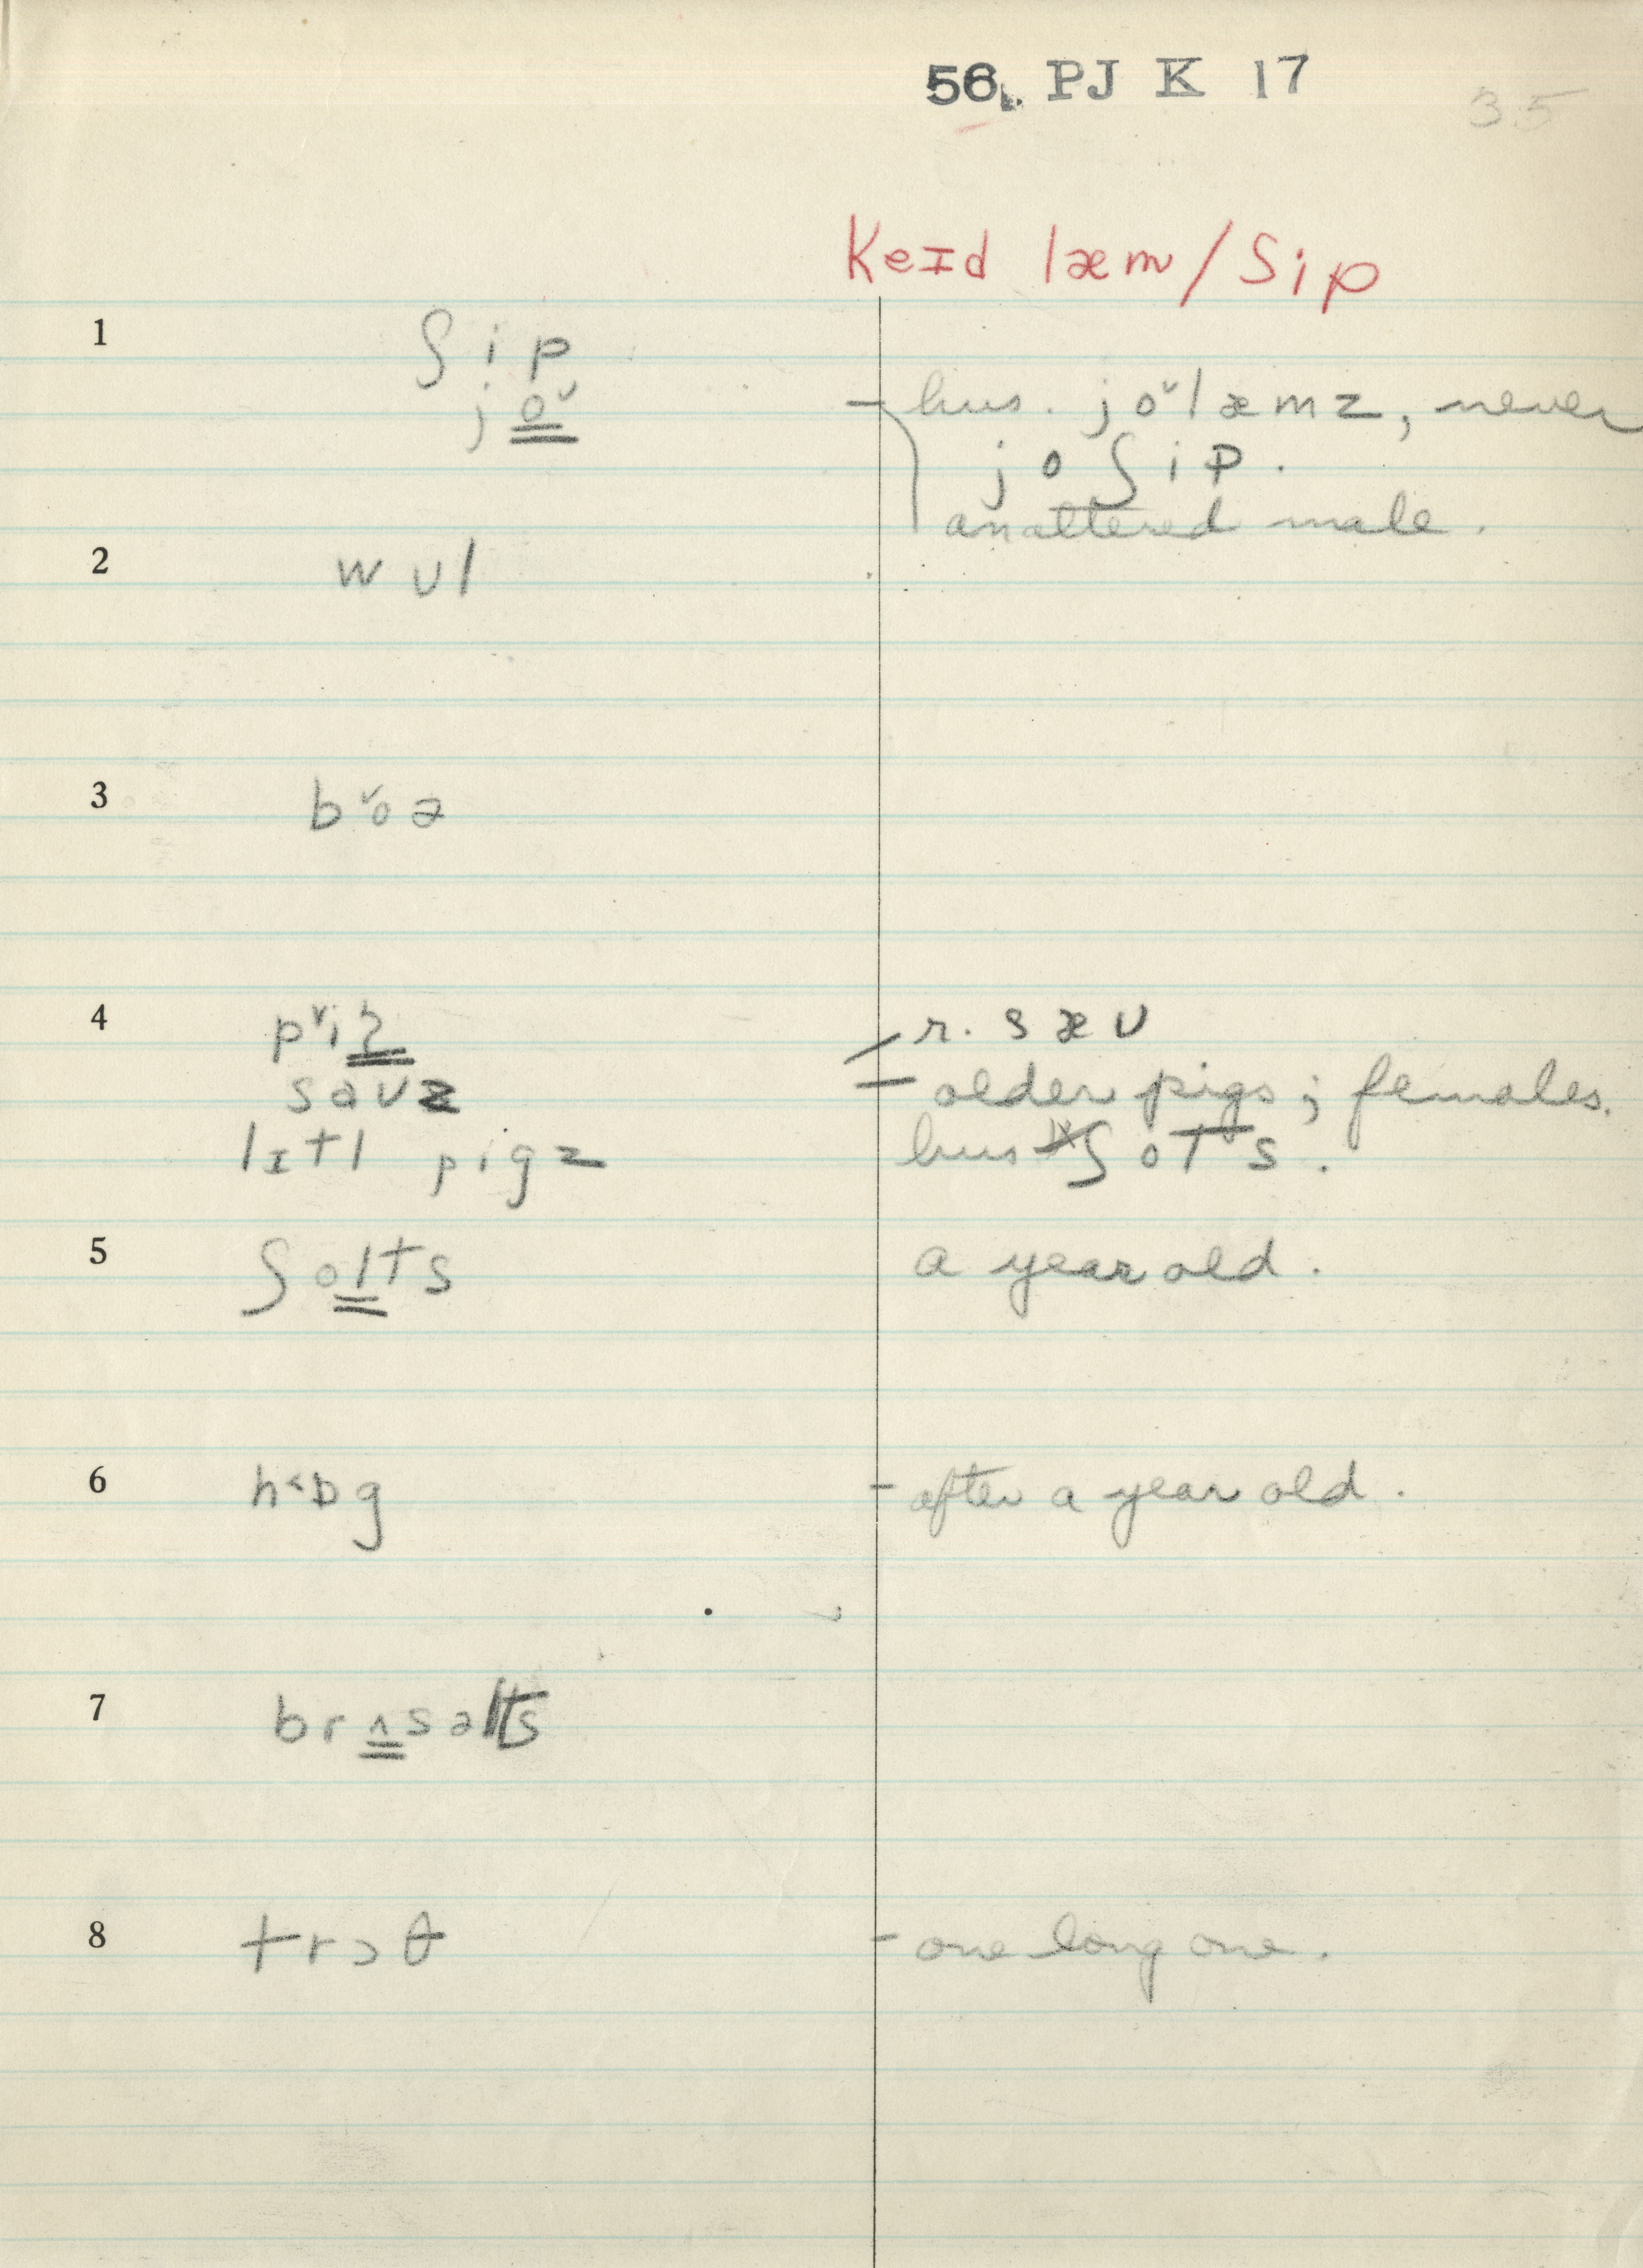 56. PJ K 17
35
keɪd læm/ʃip
1 ʃip
jo̳ˇ - hus. joˇlæmz, never
joʃip.
unaltered male.
2 wʊl
3 bˇoə
4 pˇiɡ̳ - r. sæʊ
saʊz - older pigs; females.
lɪtl pigz hus ʃots.
5 ʃol̳ts a year old.
6 h˂ɒg - after a year old.
7 brʌ̳səlts
8 trɔθ - one long one.